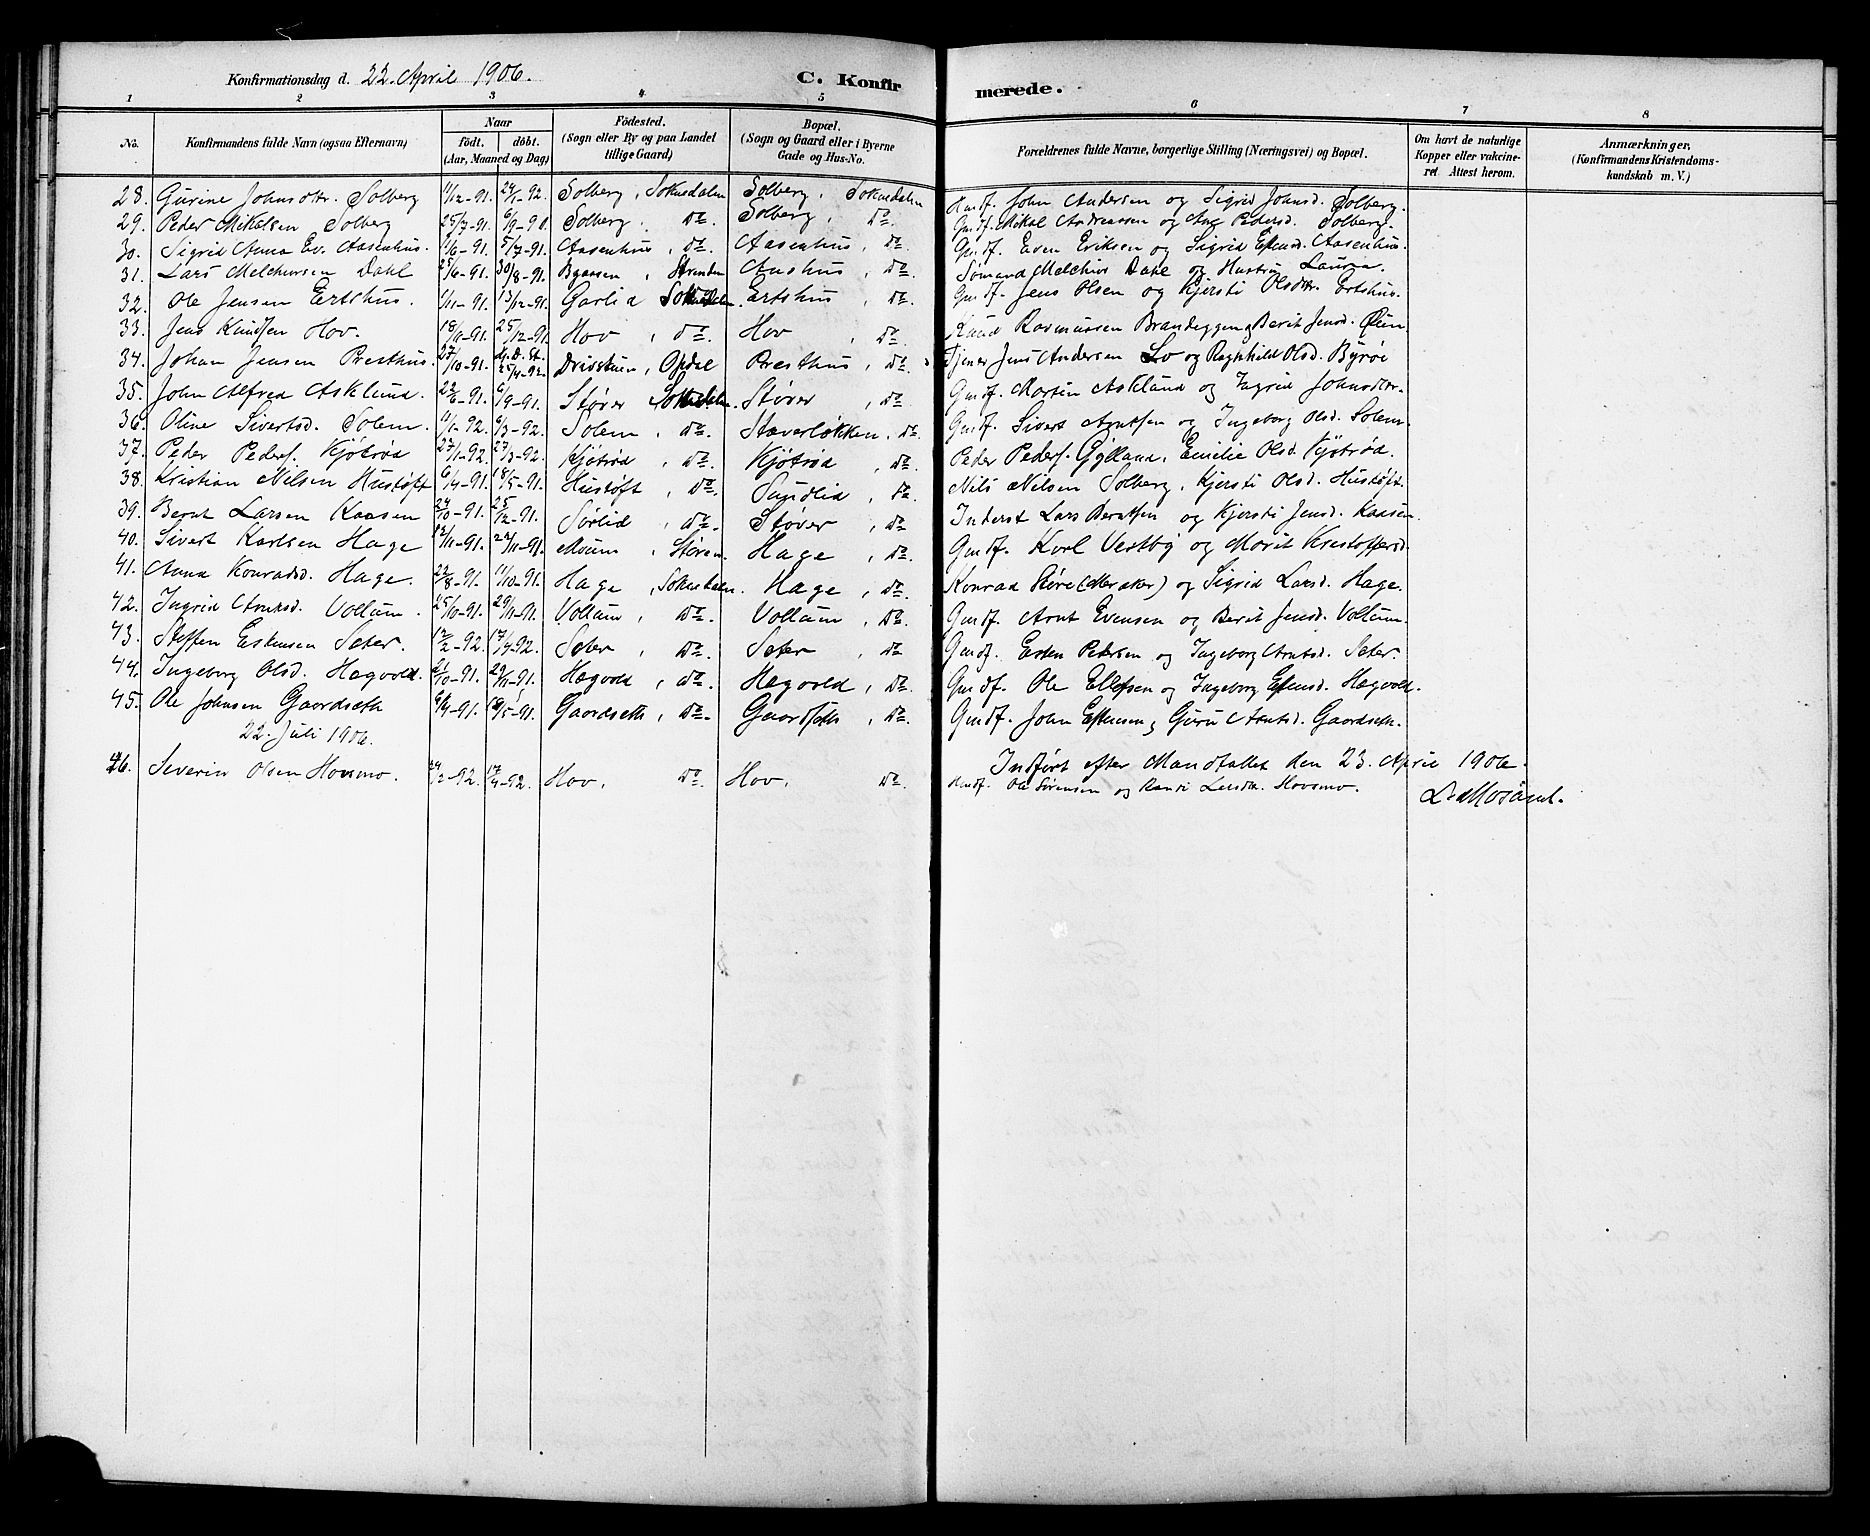 Konfirmationsdag d. 22. April 1906. C. Konfirmerede.
1 2 3 4 5 6 7 8
No. Konfirmandens fulde Navn (ogsaa Efternavn) Naar födt. döbt. (Aar, Maaned og Dag) Födested. (Sogn eller By og paa Landet tillige Gaard) Bopæl. (Sogn og Gaard eller i Byerne Gade og Hus-No. Forældrenes fulde Navne, borgerlige Stilling (Næringsvei) og Bopæl. Om havt de naturlige Kopper eller vakcineret. Attest herom. Anmærkninger, (Konfirmandens Kristendomskundskab m. V.)
28. Gurine Johnsdtr. Solberg 11/12-91. 24/1-92. Solberg, Soknedalen Solberg, Soknedalen Gmdf. John Andersen og Sigrid Johnsd. Solberg.
29. Peder Mikalsen Solberg 25/7-91. 6/9-91. Solberg, do. Solberg, do. Gmdf. Mikal Andreassen og Ane Pedersd. Solberg.
30. Sigrid Anna Ev. Aasenhus. 11/6-91. 5/7-91. Aasenhus, do. Aasenhus, do. Gmdf. Even Eriksen og Sigrid Estensd. Aasenhus.
31. Lars Melchiorsen Dahl 25/6-91. 30/8-91. Byaasen, Strinden Aashus, do. Sømand Melchior Dahl og Hustru Laurea.
32. Ole Jensen Ertshus. 1/11-91. 13/12-91. Garlid Soknedalen. Ertshus, do. Gmdf. Jens Olsen og Kjersti Olsdtr. Ertshus.
33. Jens Knudsen Hov. 18/11-91. 25/12-91. Hov, do. Hov, do. Knud Rasmussen Brandeggen, Berit Jensd. Øien
34. Johan Jensen Presthus. 27/10-91. 25/4-92. Drivstuen, Opdal Presthus, do. Tjener Jens Andersen Lo og Ragnhild Olsd. Byrøe
35. John Alfred Asklund. 22/6-91. 6/9-91. Støver Soknedalen. Støver, do. Gmdf. Morten Asklund og Ingrid Johnsdtr.
36. Oline Sivertsd. Solem. 11/1-92. 6/3-92. Solem, do. Støverløkken, do. Gmdf. Sivert Arntsen og Ingeborg Olsd. Solem.
37. Peder Peders. Kjøtrød 27/1-92. 27/3-92. Kjøtrød, do. Kjøtrød, do. Peder Peders. Gylland, Emilie Olsd. Kjøtrød.
38. Kristian Nilsen Hustøft 6/4-91. 18/5-91. Hustøft, do. Sundlid, do. Nils Nilsen Solberg, Kjersti Olsd. Hustøft.
39. Bernt Larsen Kaasen 24/10-91. 25/12-91. Sørlid, do. Støver, do. Inderst Lars Berntsen og Kjersti Jensd. Kaasen.
40. Sivert Karlsen Hage 12/11-91. 22/11-91. Moum, Støren. Hage, do. Gmdf. Karl Vestby og Marit Kristoffersd.
41. Anna Konradsd. Hage. 22/8-91. 11/10-91. Hage, Soknedalen. Hage, do. Konrad Støre (Meraker) og Sigrid Larsd. Hage.
42. Ingrid Arntsd. Vollum. 25/10-91. 29/11-91. Vollum, do. Vollum, do. Gmdf. Arnt Evensen og Berit Jensd. Vollum.
43. Steffen Estensen Sæter. 12/2-92. 17/4-92. Sæter, do. Sæter, do Gmdf. Esten Petersen og Ingeborg Arntsd. Sæter.
44. Ingeborg Olsd. Hægvold. 21/10-91. 29/11-91. Hægvold, do. Hægvold, do. Gmdf. Ole Ellefsen og Ingeborg Estensd. Hægvold.
45. Ole Johnsen Gaardseth 6/4-91. 18/5-91. Gaardseth, do. Gaardseth, do. Gmdf. John Estensen, Guru Arntsd. Gaardseth.
22. Juli 1906. Indført efter Mandtallet den 23. April 1906.
46. Severin Olsen Hovsmo. 24/2-92. 17/4-92. Hov, do. Hov, do. Gmdf. Ole Sørensen og Randi Larsdtr. Hovsmo.